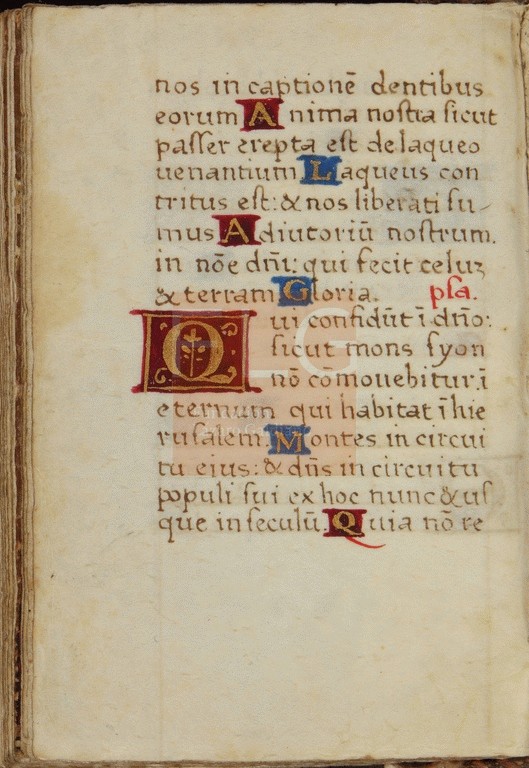 nos in captionē dentibus
eorum Anima nostra sicut
passer erepta est de laqueo
uenantium Laqueus con
tritus est: & nos liberati su
mus Adiutoriū nostrum.
in nōe dn̄i: qui fecit celuz
& terram Gloria. psa.
Qui confidūt ī dn̄o:
sicut mons syon
nō cōmouebitur. ī
eternum qui habitat ī hie
rusalem. Montes in circui
tu eius: & dn̄s in circuitu
populi sui ex hoc nunc & us
que in seculū. Quia nō re